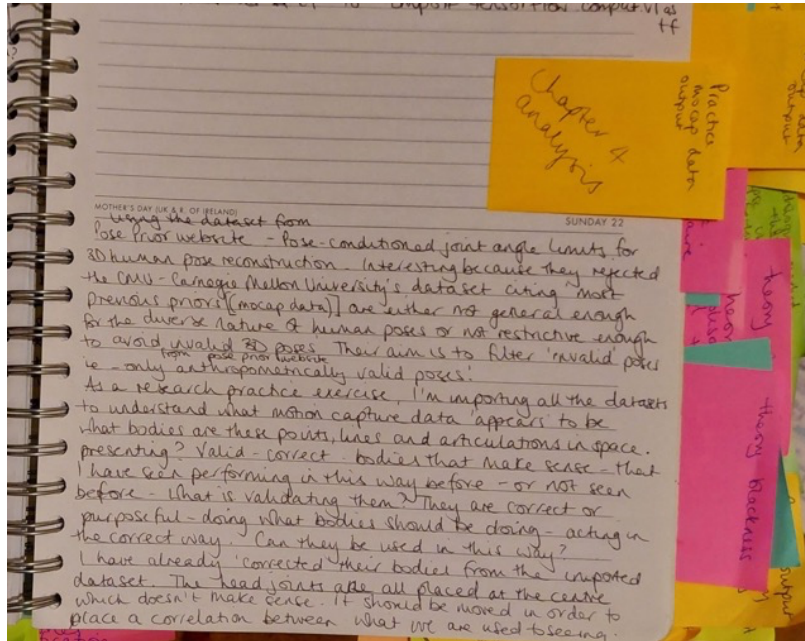 import tensorflow.compat.v1 as
tf
Chapter 4
analysis
Practice
mocap data
output
MOTHER'S DAY (UK & R. OF IRELAND)
SUNDAY 22
Using the dataset from
Pose Prior website - Pose-conditioned joint angle limits for
3D human pose reconstruction. Interesting because they rejected
the CMU - Carnegie Mellon University's dataset citing 'most
previous priors [(mocap data)] are either not general enough
for the diverse nature of human poses or not restrictive enough
to avoid invalid 3D poses. Their aim is to filter 'invalid' poses
from pose prior website
ie - only anthropometrically valid poses!
As a research practice exercise, I'm importing all the datasets
to understand what motion capture data 'appears' to be
what bodies are these points, lines and articulations in space.
presenting? Valid - correct - bodies that make sense - that
I have seen performing in this way before - or not seen
before - What is validating them? They are correct or
purposeful - doing what bodies should be doing - acting in
the correct way. Can they be used in this way?
I have already 'corrected' their bodies from the imported
dataset. The head joints are all placed at the centre
which doesn't make sense. It should be moved in order to
place a correlation between what we are used to seeing.
theory
theory blackness
output